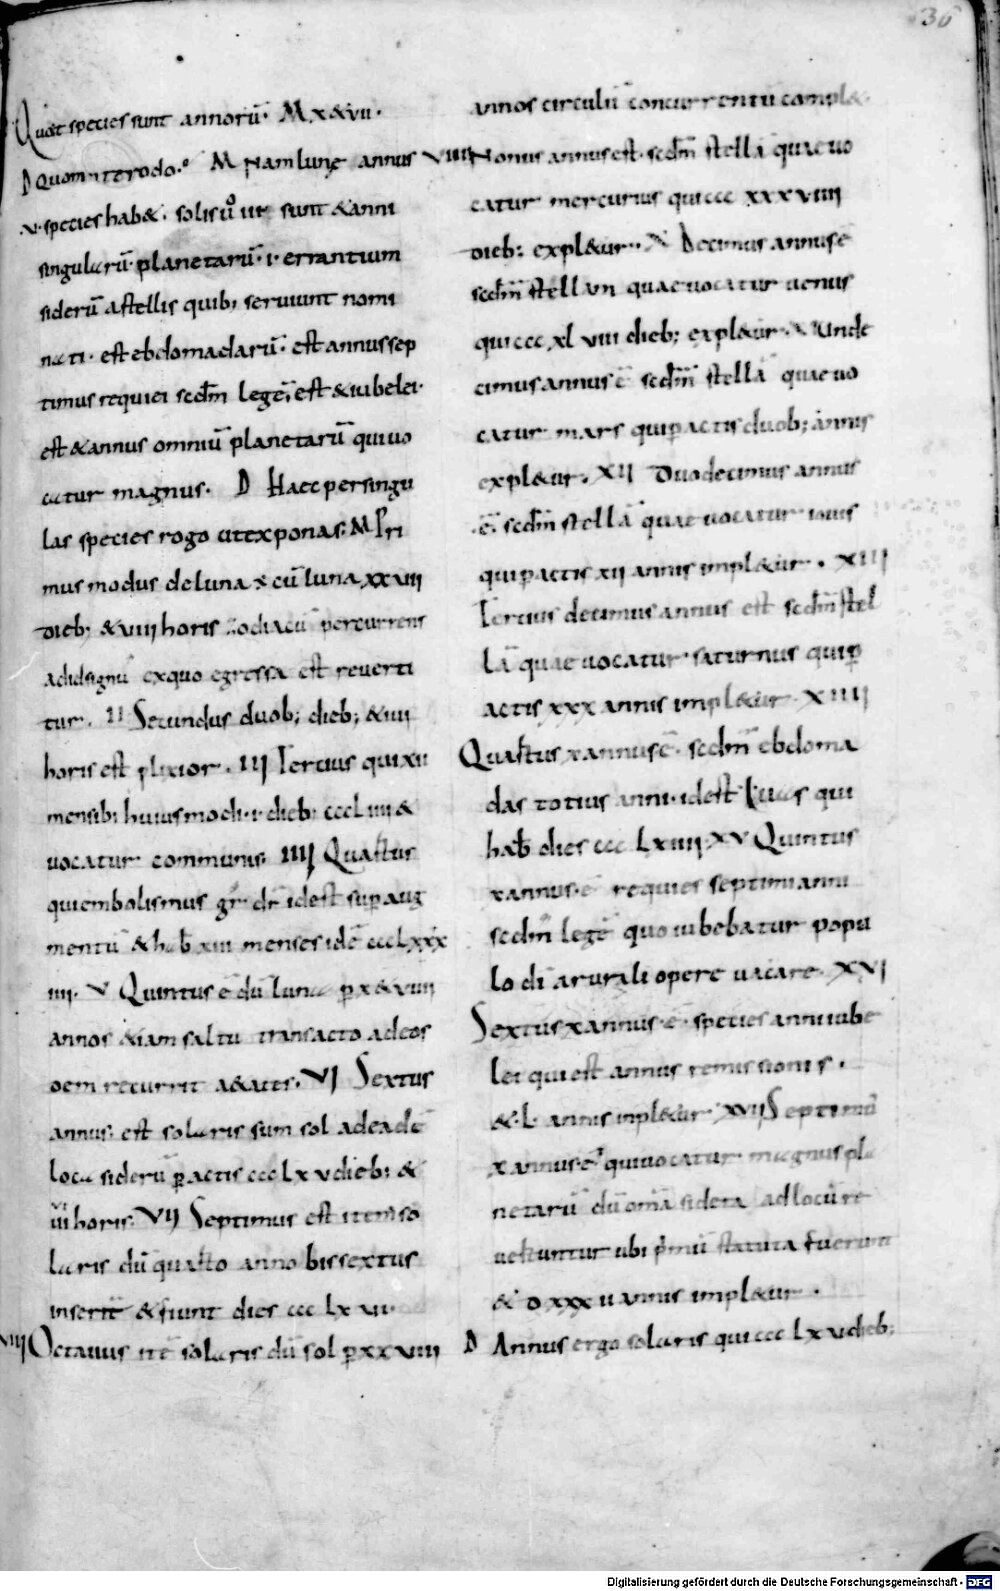 36
Quot species sunt annorū· M x & vii·
D Quomodo· M Nam lunę annus
v· species hab&· solis ů vii sunt & anni
singularū· planetarū· i· errantium
siderū a stellis quib; seruiunt nomi
nati· est ebdomadarū· est annus sep
timus requiei scdm̄ legē; est & iubelei·
est & annus omniū planetarū qui uo
catur magnus· D Haec per singu
las species rogo ut exponas· M Pri
mus modus de luna cū luna xxvii
dieb; & viii horis zodiacū percurrens
ad id signū ex quo egressa est reuerti
tur· II Secundus duob; dieb; & iiii
horis est plixior· III Tertius qui xii
mensib; huiusmodi· i· dieb; cccliiii &
uocatur communis· IIII Quartus
qui embolismus gr̄ dr̄ id est sup aug
mentū & hab& xiii menses id ē ccclxxx
iiii· V Quintus ē dū luna p x & viiii
annos & iam saltu transacto ad eos
dem recurrit a&ates· VI Sextus
annus est solaris cum sol ad eadē
loca siderū pactis ccclxv dieb; &
vi
horis· VII Septimus est item so
laris dū quarto anno bissextus
inseritr̄ & fiunt dies ccc lxvi·
VIII Octauus itē solaris dū sol p xxviii
annos circulū concurrentū compl&·
VIIII Nonus annus est· scdm̄ stellā quae uo
catur mercurius qui ccc xxxviiii
dieb; expl&ur· X Decimus annus ē
scdm̄ stellam quae uocatur uenus
qui ccc xl viii dieb; expl&ur· XI Unde
cimus annus ē scdm̄ stellā quae uo
catur mars qui pactis duob; annis
expl&ur· XII Duodecimus annus
ē· scdm̄ stellā quae uocatur iouis
qui pactis xii annis impl&ur· XIII
Tertius decimus annus est scdm̄ stel
lā quae uocatur saturnus qui p
actis xxx annis impl&ur· XIIII
Quartus x annus ē· scdm̄ ebdoma
das totius anni· id est qui
hab& dies ccc lxiiii· XV Quintus
x annus· ē requies septimi anni
scdm̄ legē quo iubebatur popu
lo dī a rurali opere uacare· XVI
Sextus x annus· ē· species anni iube
lei qui est annus remissionis·
& l· annis inpl&ur· XVII Septimū
x annus· ē qui uocatur magnus pla
netarū dū omīa sidera ad locū re
uertuntur ubi p̄mū statuta fuerunt
& dxxxii annis impl&ur·
D Annus ergo solaris qui ccc lxv dieb;
Digitalisierung gefördert durch die Deutsche Forschungsgemeinschaft - DFG